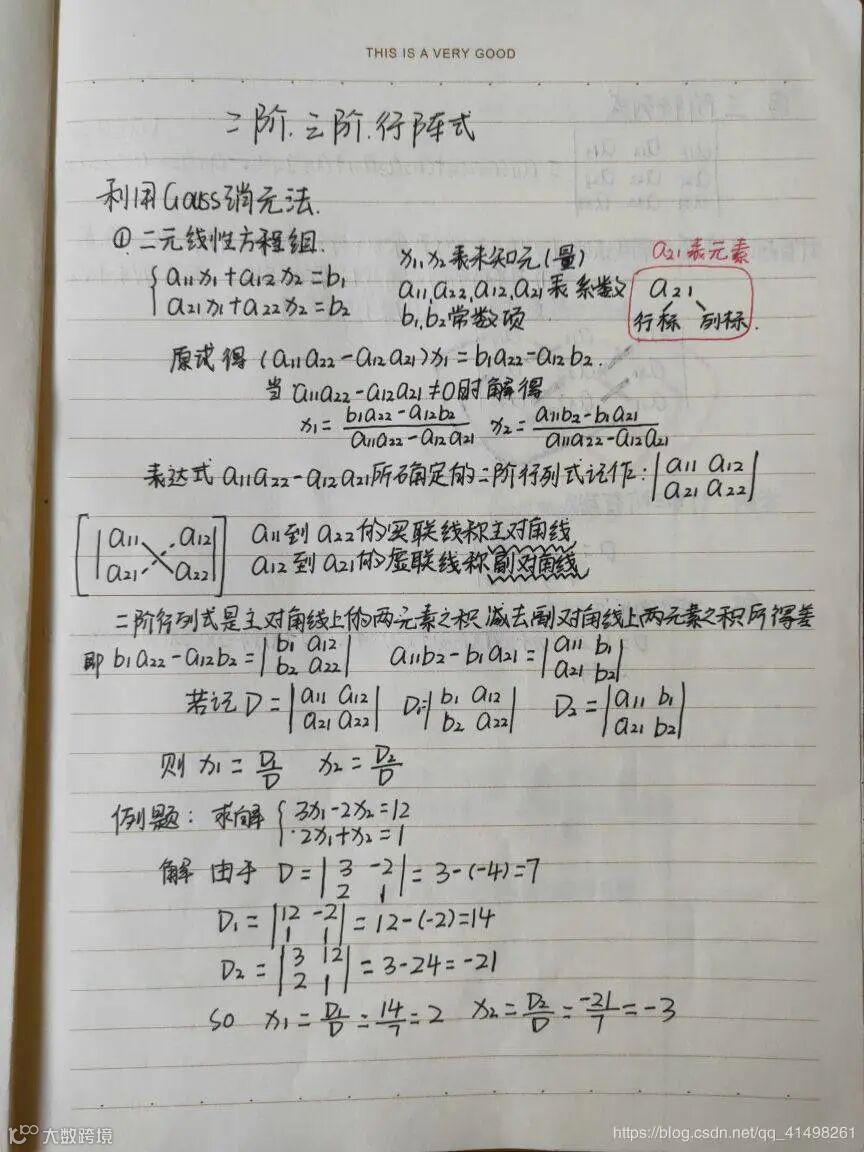 THIS IS A VERY GOOD
二阶.三阶.行阵式
利用Gauss消元法.
①二元线性方程组.
{a11x1+a12x2=b1
a21x1+a22x2=b2
x1,x2表未知元(量)
a11,a22,a12,a21表系数
b1,b2常数项
a21表元素
a21
行标 列标.
原试得(a11a22-a12a21)x1=b1a22-a12b2.
当a11a22-a12a21≠0时解得
x1=(b1a22-a12b2)/(a11a22-a12a21) x2=(a11b2-b1a21)/(a11a22-a12a21)
表达式a11a22-a12a21所确定的二阶行列式记作:|a11 a12|
|a21 a22|
[|a11 a12|
|a21 a22|]
a11到a22的实联线称主对角线
a12到a21的虚联线称副对角线
二阶行列式是主对角线上的两元素之积减去副对角线上两元素之积所得差
即b1a22-a12b2=|b1 a12| a11b2-b1a21=|a11 b1|
|b2 a22| |a21 b2|
若记D=|a11 a12| D1=|b1 a12| D2=|a11 b1|
|a21 a22| |b2 a22| |a21 b2|
则x1=D1/D x2=D2/D
例题:求解{3x1-2x2=12
2x1+x2=1
解 由于 D=|3 -2|=3-(-4)=7
|2 1|
D1=|12 -2|=12-(-2)=14
|1 1|
D2=|3 12|=3-24=-21
|2 1|
so x1=D1/D=14/7=2 x2=D2/D=-21/7=-3
大数跨境
https://blog.csdn.net/qq_41498261